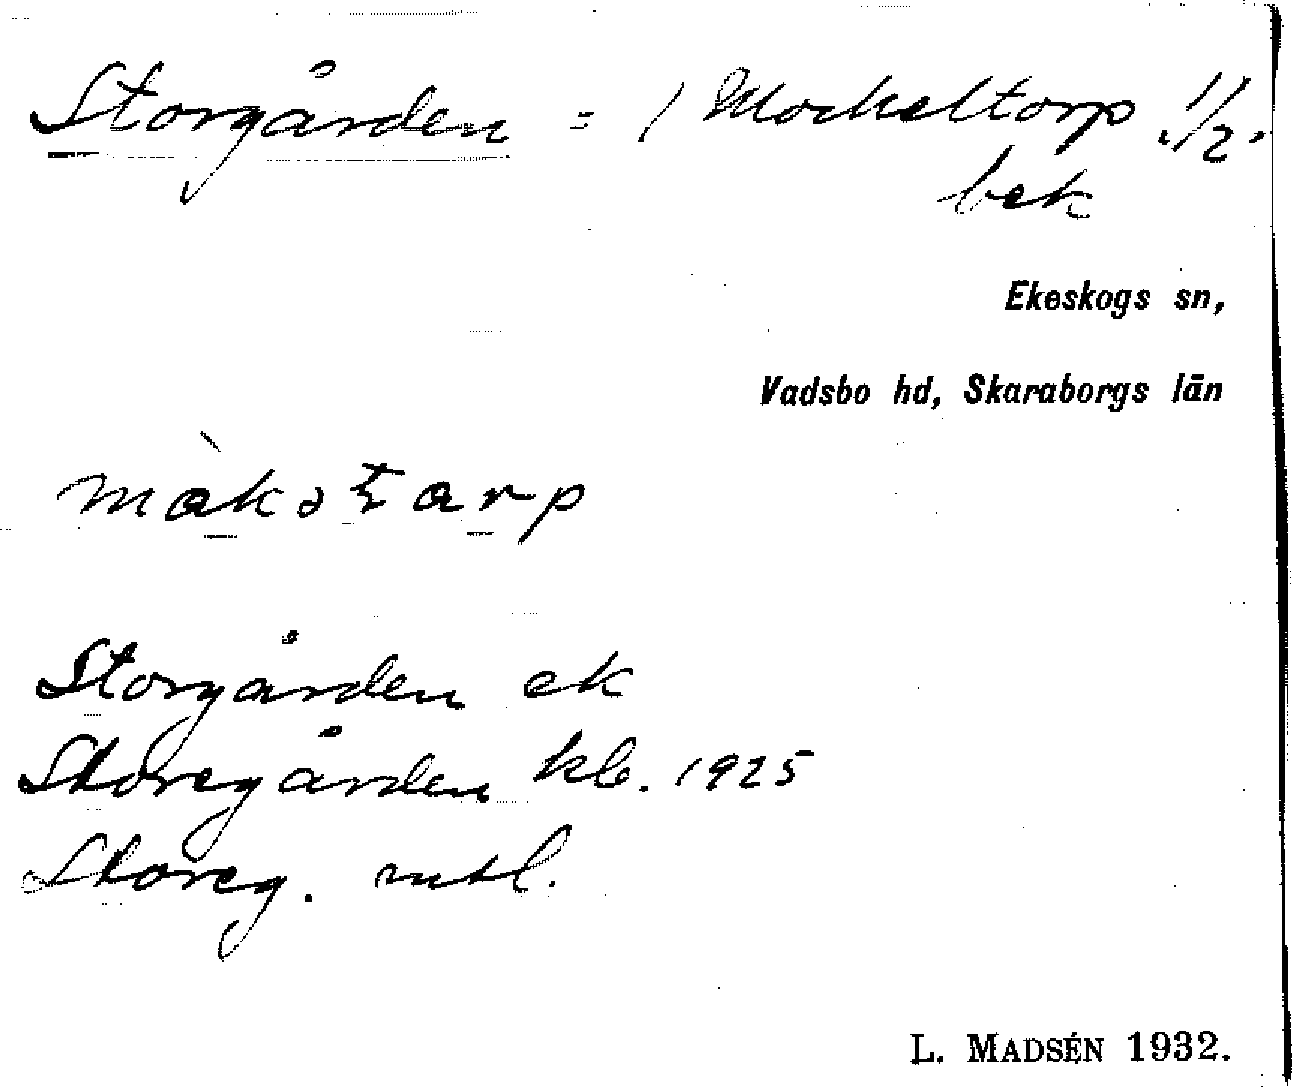 Storgården = / Mockeltorp 1/2.
bek
Ekeskogs sn,
Vadsbo hd, Skaraborgs län
màkətarp
Storgården ek
Storegården kb. 1925
Storeg. mtl.
L. MADSÉN 1932.